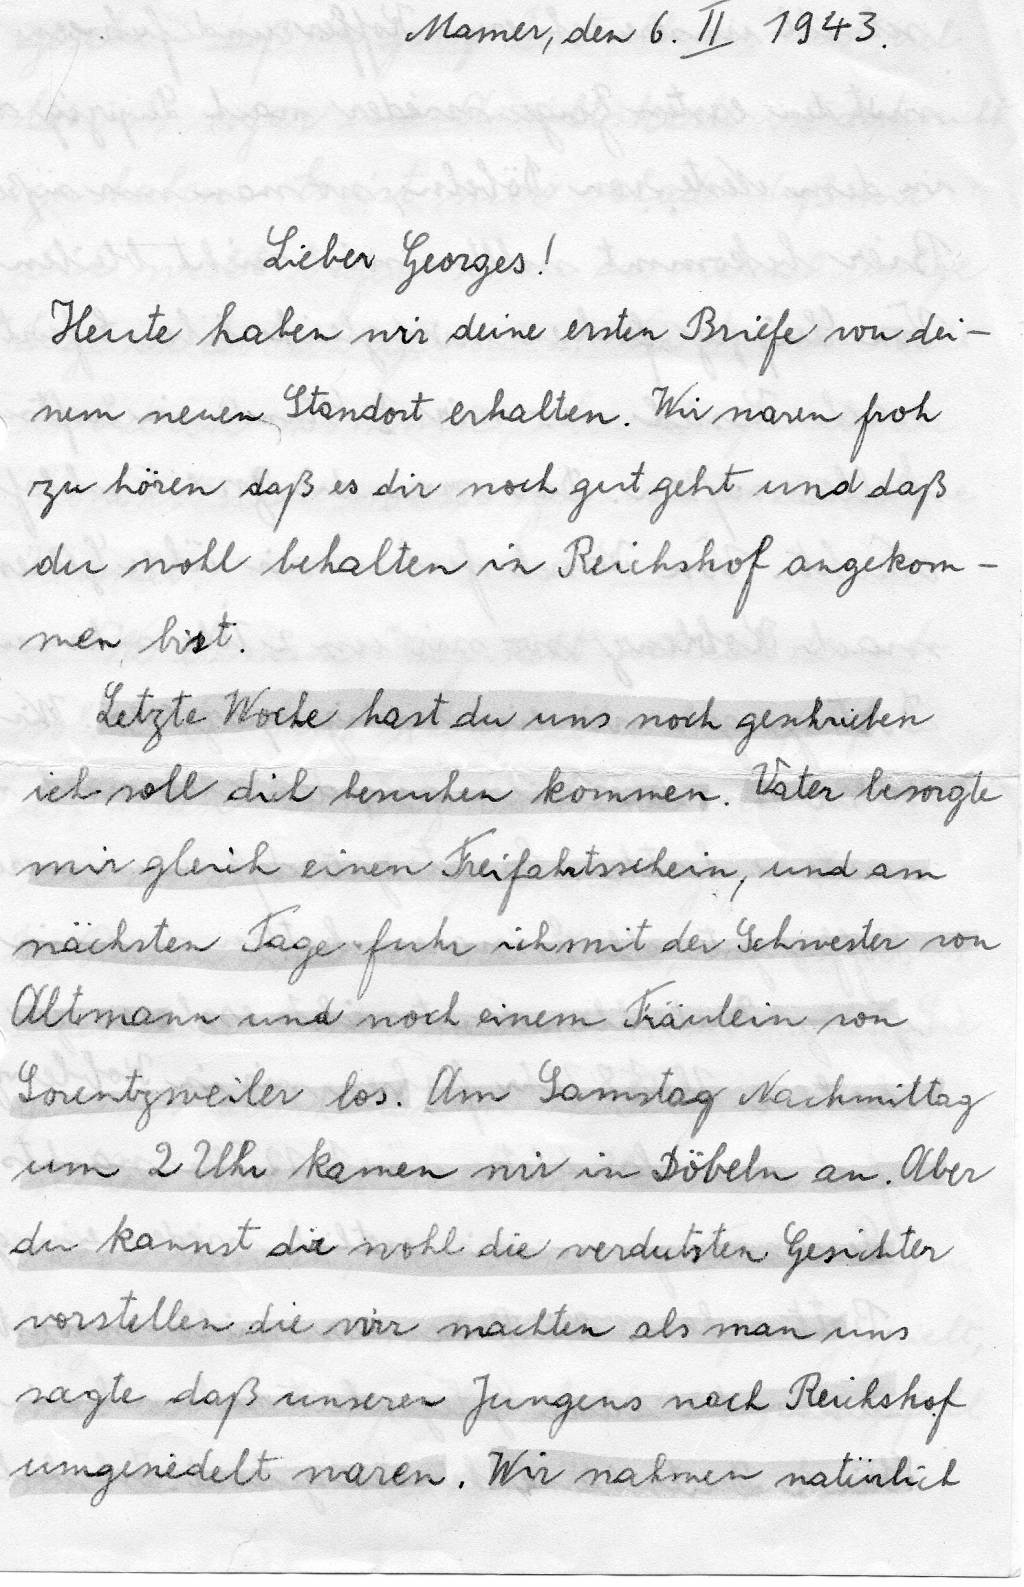 Mamer, den 6. II 1943.
Lieber Georges!
Heute haben wir deine ersten Briefe von dei-
nem neuen Standort erhalten. Wir waren froh
zu hören daß es dir noch gut geht und daß
du wohl behalten in Reichshof angekom-
men bist.
Letzte Woche hast du uns noch geschrieben
ich soll dich besuchen kommen. Vater besorgte
mir gleich einen Freifahrtsschein, und am
nächsten Tage fuhr ich mit der Schwester von
Altmann und noch einem Fräulein von
Lorentzweiler los. Am Samstag Nachmittag
um 2 Uhr kamen wir in Döbeln an. Aber
du kannst die wohl die verdutsten Gesichter
vorstellen die wir machten als man uns
sagte daß unseren Jungens nach Reichshof
umgesiedelt waren. Wir nahmen natürlich